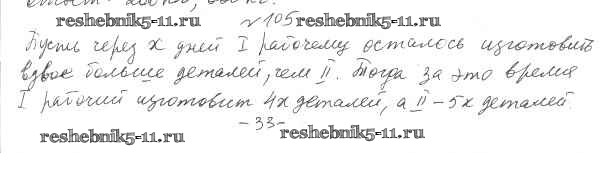 reshebnik5-11.ru №105 reshebnik5-11.ru
Пусть через x дней I рабочему осталось изготовить
вдвое больше деталей, чем II. Тогда за это время
I рабочий изготовит 4x деталей, а II – 5x деталей.
reshebnik5-11.ru -33- reshebnik5-11.ru